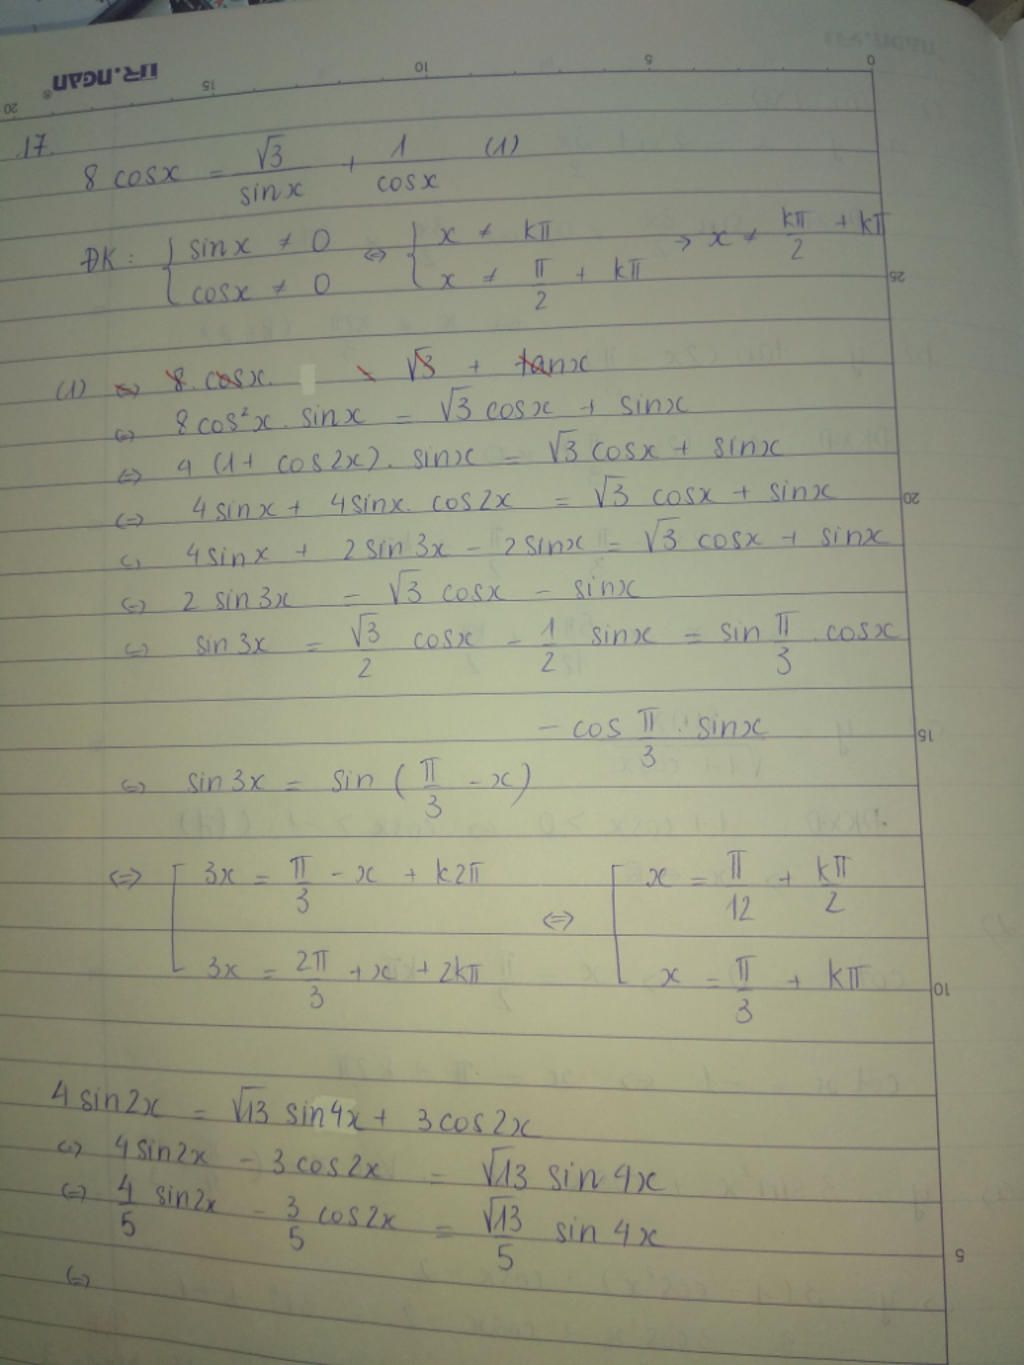 17.
8 cosx = √3/sinx + 1/cosx (1)
ĐK: { sinx ≠ 0 ⇔ { x ≠ kπ → x ≠ kπ/2 + kπ
cosx ≠ 0 x ≠ π/2 + kπ
(1) ⇔ 8. cosx. √3 + tanx
⇔ 8cos²x. sinx = √3 cosx + sinx
⇔ 4 (1+ cos2x). sinx = √3 cosx + sinx
⇔ 4sinx + 4sinx. cos2x = √3 cosx + sinx
⇔ 4sinx + 2sin3x - 2sinx = √3 cosx + sinx
⇔ 2 sin3x = √3 cosx - sinx
⇔ sin3x = √3/2 cosx - 1/2 sinx = sin π/3 . cosx
- cos π/3 . sinx
⇔ sin3x = sin (π/3 - x)
⇔ [ 3x = π/3 - x + k2π ⇔ [ x = π/12 + kπ/2
3x = 2π/3 + x + 2kπ x = π/3 + kπ
4sin2x = √13 sin4x + 3cos2x
⇔ 4sin2x - 3cos2x = √13 sin4x
⇔ 4/5 sin2x - 3/5 cos2x = √13/5 sin 4x
⇔
TR.NGAN®
0
5
10
15
20
25
20
15
10
5